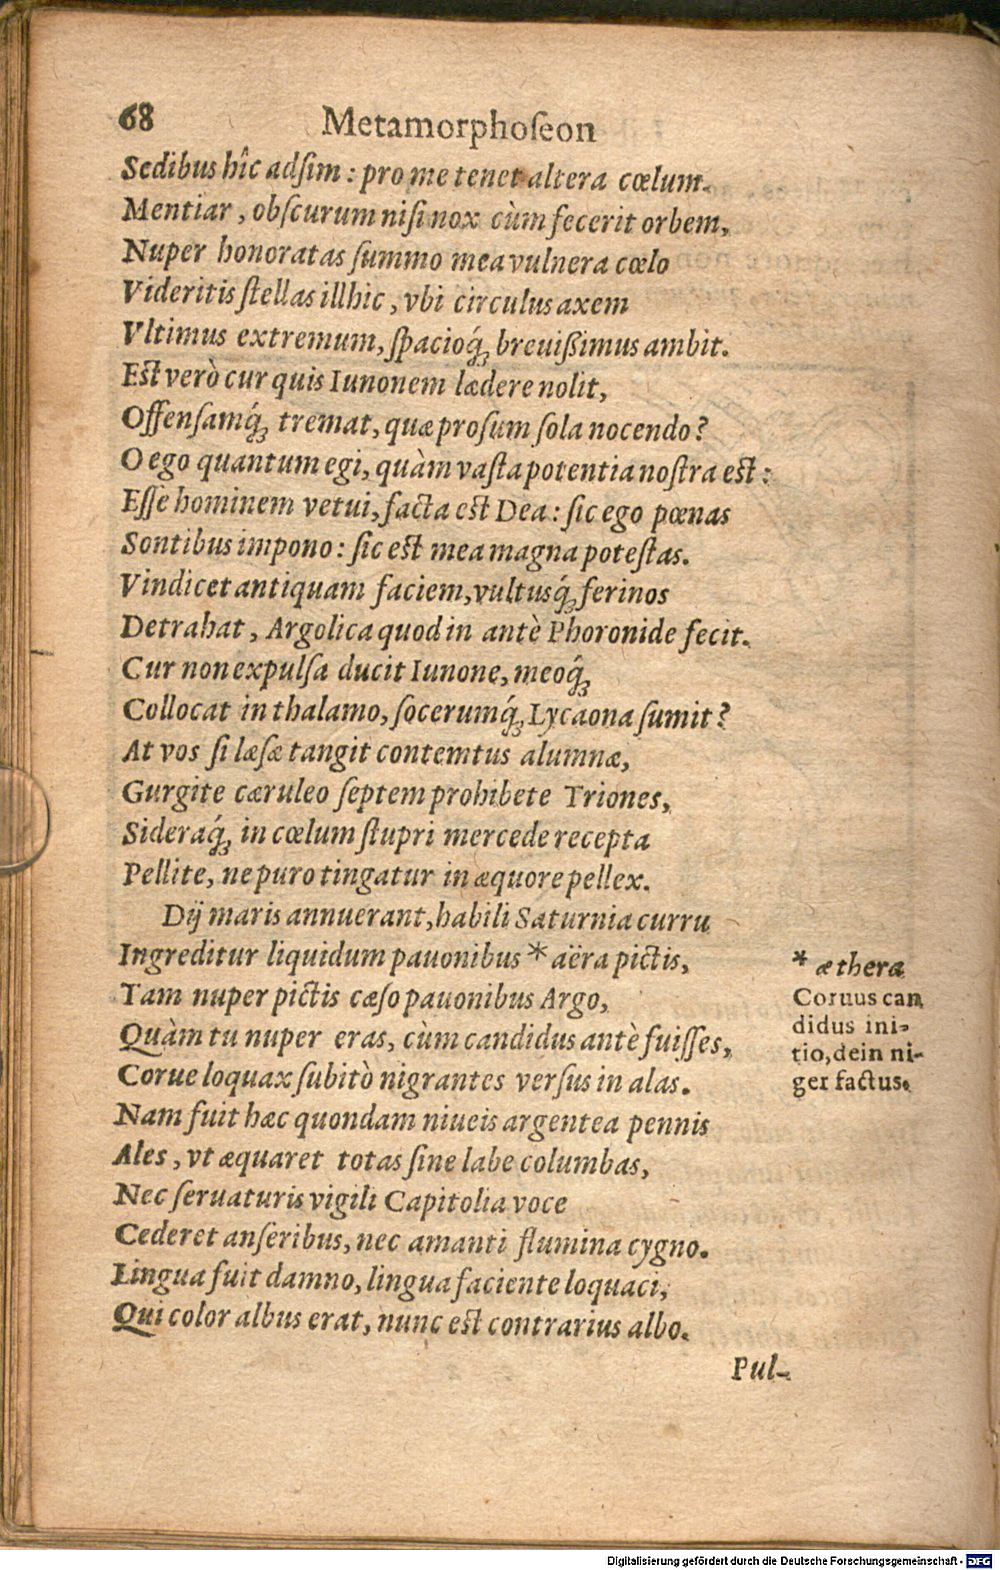 68 Metamorphoſeon
Sedibus hîc adſim : pro me tenet altera cœlum.
Mentiar, obſcurum niſi nox cùm fecerit orbem,
Nuper honoratas ſummo mea vulnera cœlo
Videritis ſtellas illhic, vbi circulus axem
Vltimus extremum, ſpacioq́; breuiſsimus ambit.
Eſt verò cur quis Iunonem lædere nolit,
Offenſamq́; tremat, quæ proſum ſola nocendo?
O ego quantum egi, quàm vaſta potentia noſtra eſt :
Eſſe hominem vetui, facta eſt Dea : ſic ego pœnas
Sontibus impono : ſic eſt mea magna poteſtas.
Vindicet antiquam faciem, vultusq́; ferinos
Detrahat, Argolica quod in antè Phoronide fecit.
Cur non expulſa ducit Iunone, meoq́;
Collocat in thalamo, ſocerumq́; Lycaona ſumit?
At vos ſi læſæ tangit contemtus alumnæ,
Gurgite cæruleo ſeptem prohibete Triones,
Sideraq́; in cœlum ſtupri mercede recepta
Pellite, ne puro tingatur in æquore pellex.
Dij maris annuerant, habili Saturnia curru
Ingreditur liquidum pauonibus * aëra pictis,
Tam nuper pictis cæſo pauonibus Argo,
Quàm tu nuper eras, cùm candidus antè fuiſſes,
Corue loquax ſubitò nigrantes verſus in alas.
Nam fuit hæc quondam niueis argentea pennis
Ales, vt æquaret totas ſine labe columbas,
Nec ſeruaturis vigili Capitolia voce
Cederet anſeribus, nec amanti flumina cygno.
Lingua fuit damno, lingua faciente loquaci,
Qui color albus erat, nunc eſt contrarius albo.
Pul-
* æthera
Coruus can
didus ini-
tio, dein ni-
ger factus.
Digitalisierung gefördert durch die Deutsche Forschungsgemeinschaft - DFG